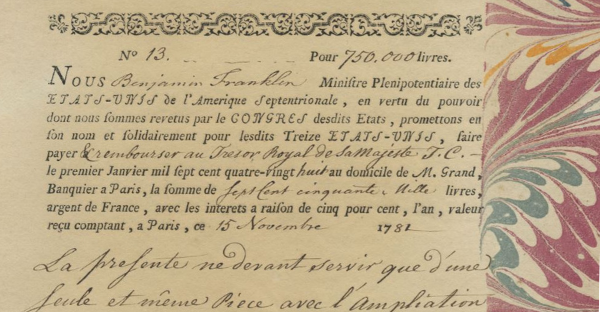 Nº 13. Pour 750.000 livres.
NOUS Benjamin Franklin Ministre Plenipotentiaire des
ETATS-UNIS de l'Amerique Septentrionale, en vertu du pouvoir
dont nous sommes revetus par le CONGRES desdits Etats, promettons en
son nom et solidairement pour lesdits Treize ETATS-UNIS, faire
payer & rembourser au Tresor Royal de Sa Majesté T. C. –
le premier Janvier mil sept cent quatre-vingt huit au domicile de M. Grand,
Banquier a Paris, la somme de Sept Cent cinquante Mille livres,
argent de France, avec les interets a raison de cinq pour cent, l'an, valeur
reçu comptant, a Paris, ce 15 Novembre 1781
La presente ne devant servir que d'une
seule et même Piece avec l'Ampliation